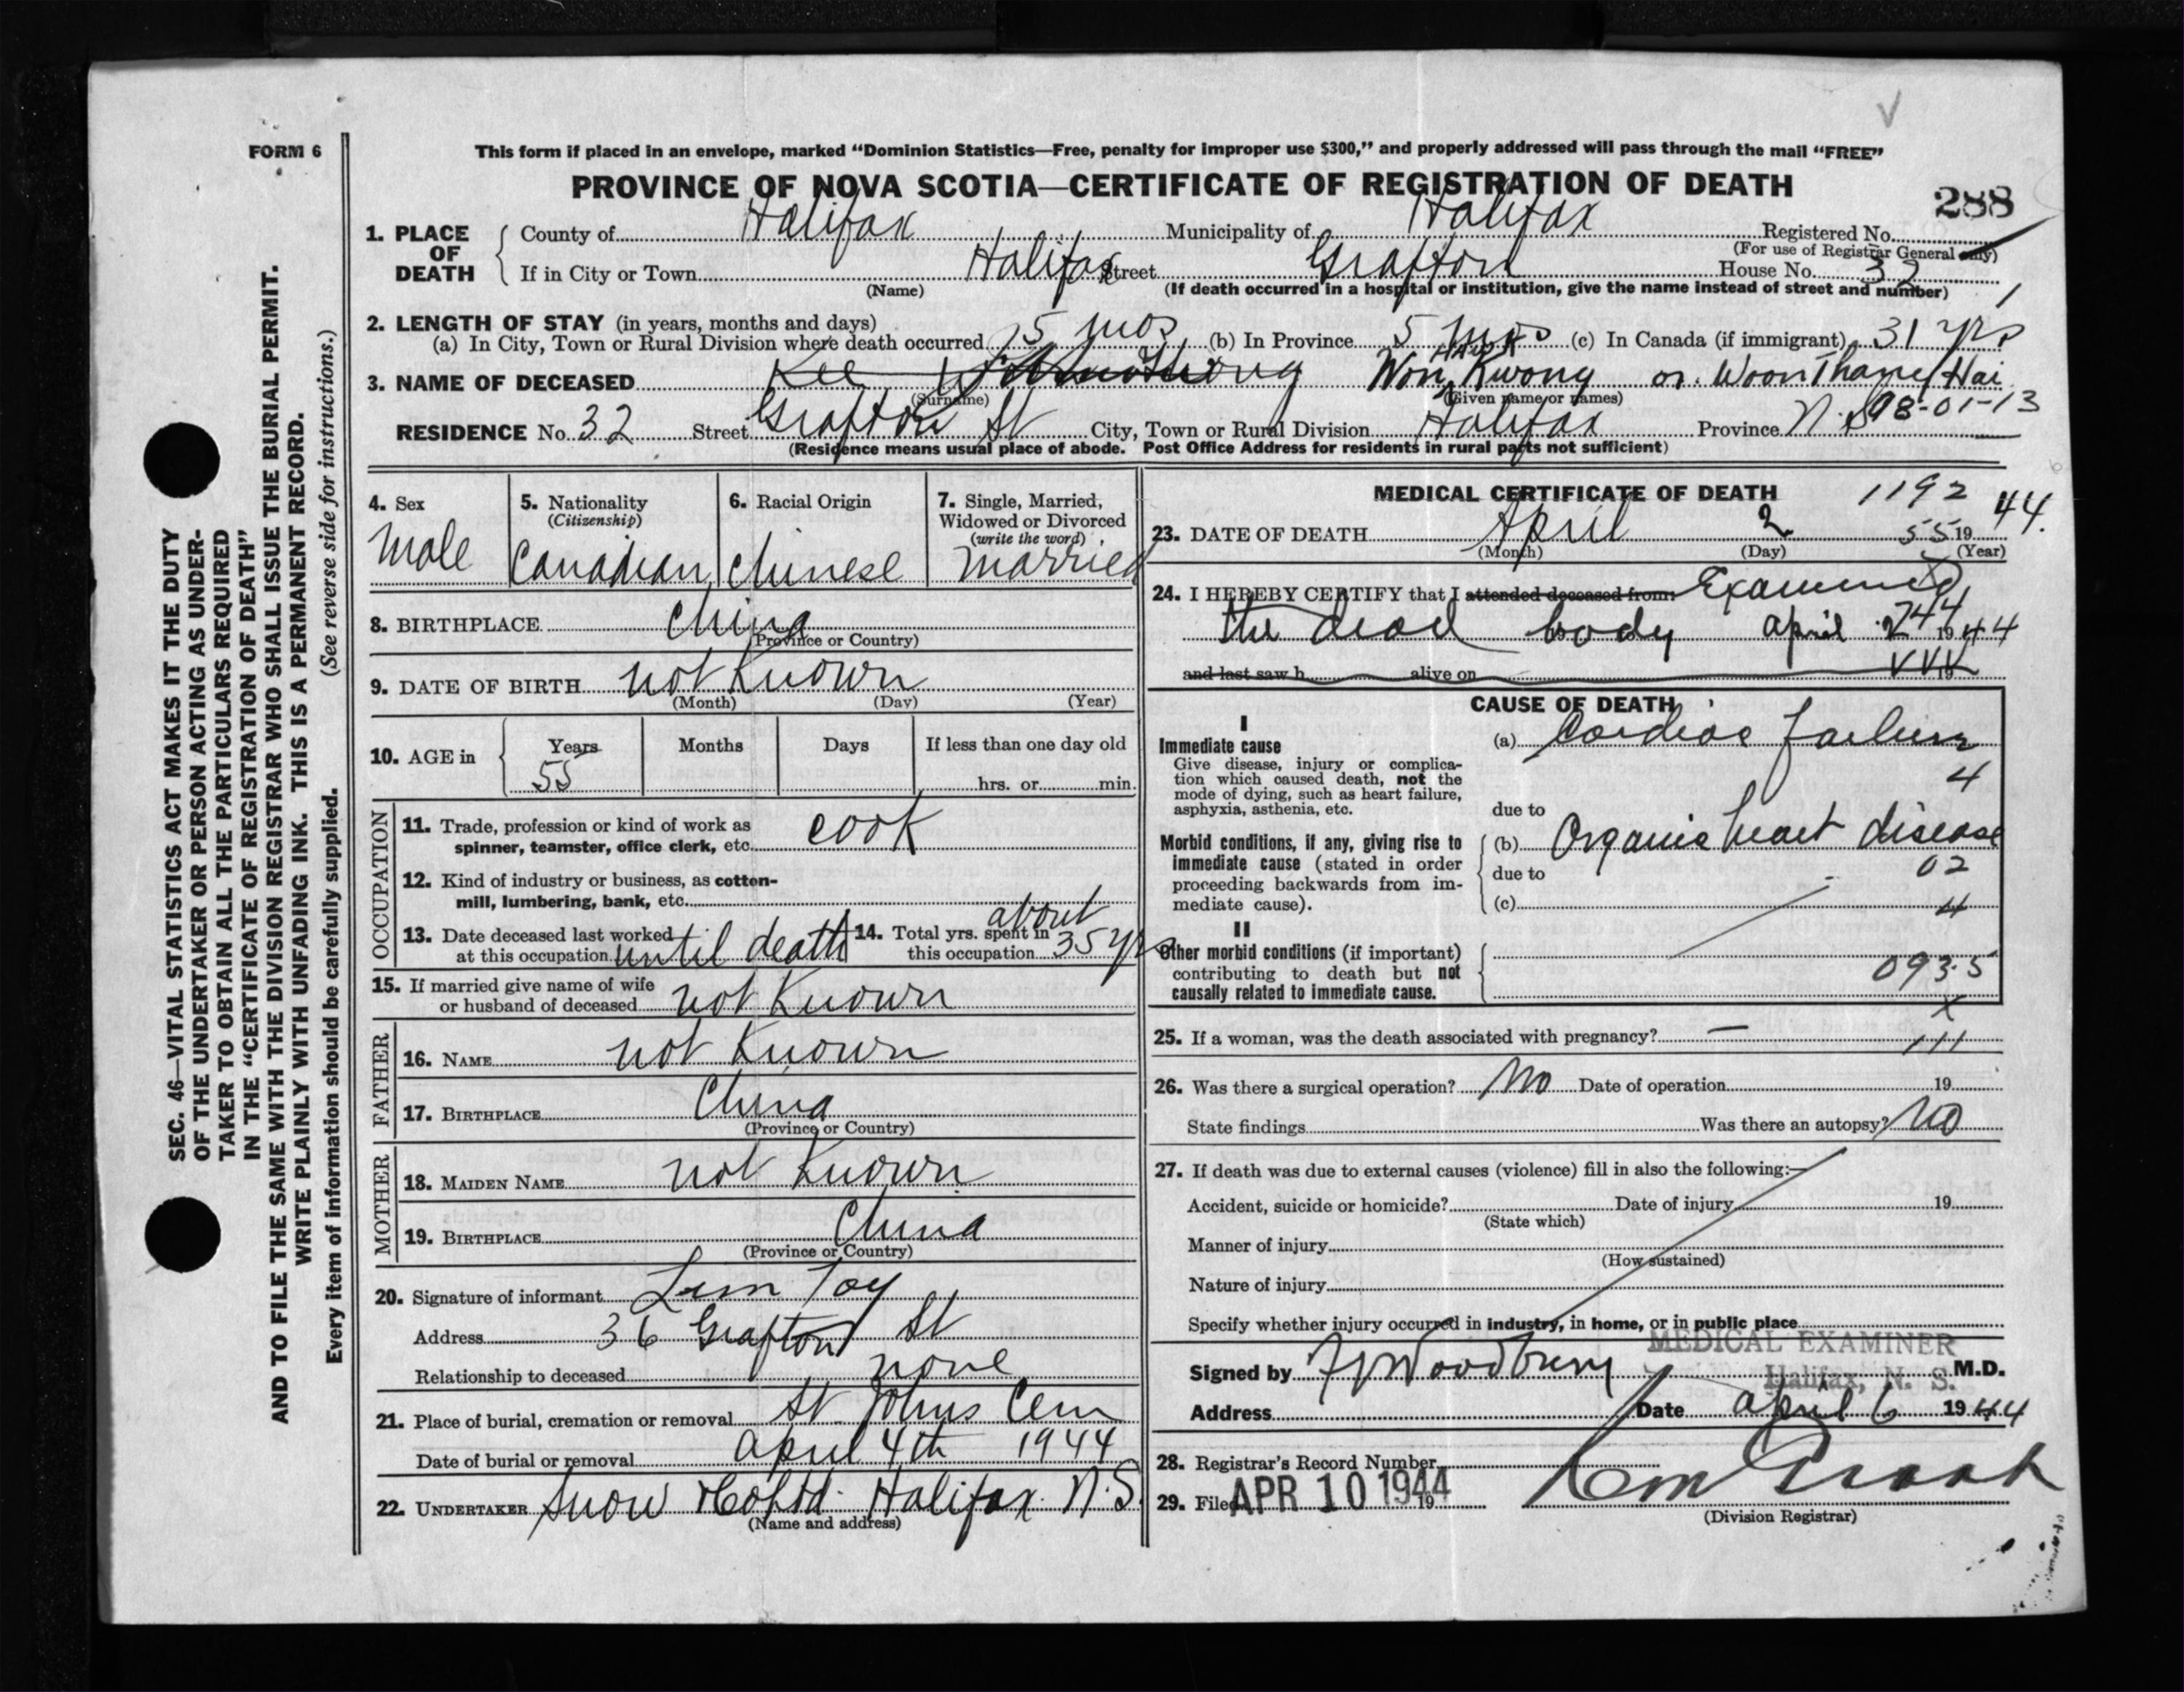 FORM 6
This form if placed in an envelope, marked “Dominion Statistics—Free, penalty for improper use $300,” and properly addressed will pass through the mail “FREE”
PROVINCE OF NOVA SCOTIA—CERTIFICATE OF REGISTRATION OF DEATH
288
1. PLACE OF DEATH
County of Halifax Municipality of Halifax Registered No.
(For use of Registrar General only)
If in City or Town Halifax Street Grafton House No. 32
(Name) (If death occurred in a hospital or institution, give the name instead of street and number)
2. LENGTH OF STAY (in years, months and days)
(a) In City, Town or Rural Division where death occurred 5 mos (b) In Province 5 mos (c) In Canada (if immigrant) 31 yrs
3. NAME OF DECEASED Kee Won Kwong or Woon Thame Hai
(Surname) (Given name or names)
98-01-13
RESIDENCE No. 32 Street Grafton St City, Town or Rural Division Halifax Province N.S
(Residence means usual place of abode. Post Office Address for residents in rural parts not sufficient)
4. Sex
Male
5. Nationality
(Citizenship)
Canadian
6. Racial Origin
Chinese
7. Single, Married,
Widowed or Divorced
(write the word)
Married
8. BIRTHPLACE China
(Province or Country)
9. DATE OF BIRTH not Known
(Month) (Day) (Year)
10. AGE in
Years Months Days If less than one day old
55 hrs. or min.
OCCUPATION
11. Trade, profession or kind of work as
spinner, teamster, office clerk, etc. cook
12. Kind of industry or business, as cotton-
mill, lumbering, bank, etc.
13. Date deceased last worked
at this occupation until death
14. Total yrs. spent in
this occupation about 35 yrs
15. If married give name of wife
or husband of deceased not Known
FATHER
16. NAME not Known
17. BIRTHPLACE China
(Province or Country)
MOTHER
18. MAIDEN NAME not Known
19. BIRTHPLACE China
(Province or Country)
20. Signature of informant Lem Toy
Address 36 Grafton St
Relationship to deceased none
21. Place of burial, cremation or removal St. Johns Cem
Date of burial or removal April 4th 1944
22. UNDERTAKER Snow & Co Ltd. Halifax. N.S.
(Name and address)
MEDICAL CERTIFICATE OF DEATH 1192
23. DATE OF DEATH April 2 55 19 44.
(Month) (Day) (Year)
24. I HEREBY CERTIFY that I attended deceased from: Examined
the dead body april 2 44 19 44
and last saw h alive on 19
VVV
CAUSE OF DEATH
I
Immediate cause
Give disease, injury or complica-
tion which caused death, not the
mode of dying, such as heart failure,
asphyxia, asthenia, etc.
(a) Cardiac failure
4
due to
Morbid conditions, if any, giving rise to
immediate cause (stated in order
proceeding backwards from im-
mediate cause).
(b) Organic heart disease
due to 02
(c) 4
II
Other morbid conditions (if important)
contributing to death but not
causally related to immediate cause.
093.5
X
25. If a woman, was the death associated with pregnancy? — 111
26. Was there a surgical operation? No Date of operation 19
State findings Was there an autopsy? No
27. If death was due to external causes (violence) fill in also the following:—
Accident, suicide or homicide? Date of injury 19
(State which)
Manner of injury
(How sustained)
Nature of injury
Specify whether injury occurred in industry, in home, or in public place
MEDICAL EXAMINER
Halifax, N. S.
Signed by Woodbury M.D.
Address Date April 6 19 44
28. Registrar's Record Number
29. Filed APR 10 1944 19
(Division Registrar)
SEC. 46—VITAL STATISTICS ACT MAKES IT THE DUTY
OF THE UNDERTAKER OR PERSON ACTING AS UNDER-
TAKER TO OBTAIN ALL THE PARTICULARS REQUIRED
IN THE “CERTIFICATE OF REGISTRATION OF DEATH”
AND TO FILE THE SAME WITH THE DIVISION REGISTRAR WHO SHALL ISSUE THE BURIAL PERMIT.
WRITE PLAINLY WITH UNFADING INK. THIS IS A PERMANENT RECORD.
Every item of information should be carefully supplied. (See reverse side for instructions.)